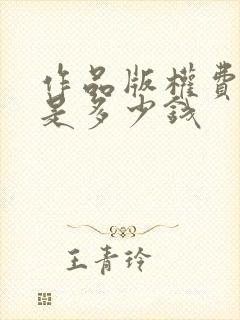 作品版權費
是多少錢
王青玲